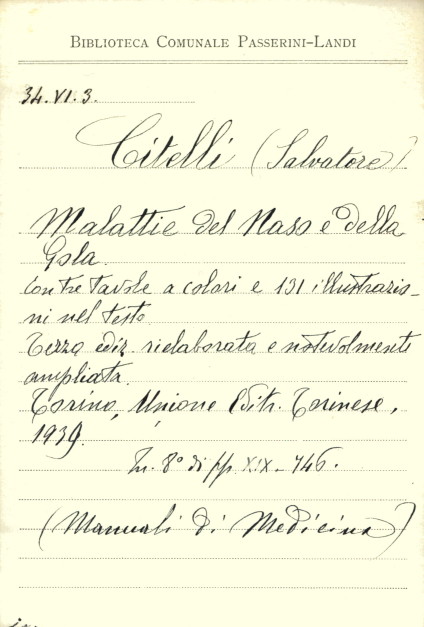 BIBLIOTECA COMUNALE PASSERINI-LANDI
34.VI.3.
Citelli (Salvatore)
Malattie del Naso e della
Gola.
Con tre tavole a colori e 131 illustrazio-
ni nel testo
Terza ediz. rielaborata e notevolmente
ampliata.
Torino, Unione Editr. Torinese,
1939.
In. 8° di pp. XIX - 746.
(Manuali di Medicina)